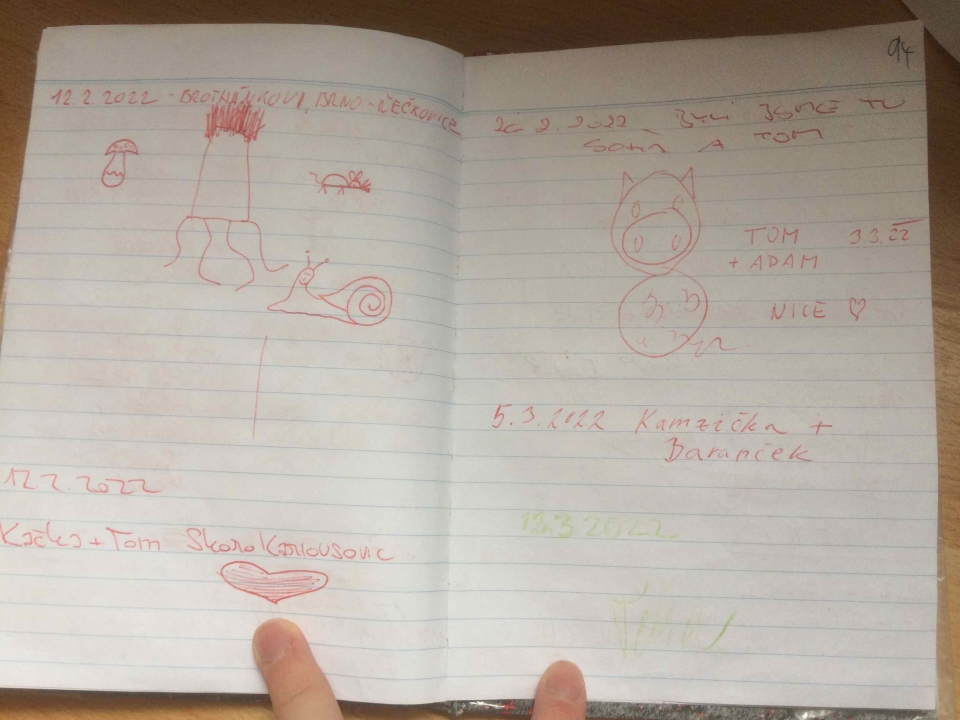 12.2.2022 - BROTHÁNKOVI, BRNO-ŘEČKOVICE
12.2.2022
Kačka + Tom SkoroKarlousovic
94
26.2.2022 BYLI JSME TU
SOŇA A TOM
TOM 3.3.22
+ ADAM
NICE ♡
5.3.2022 Kamzička +
Baránček
13.3.2022